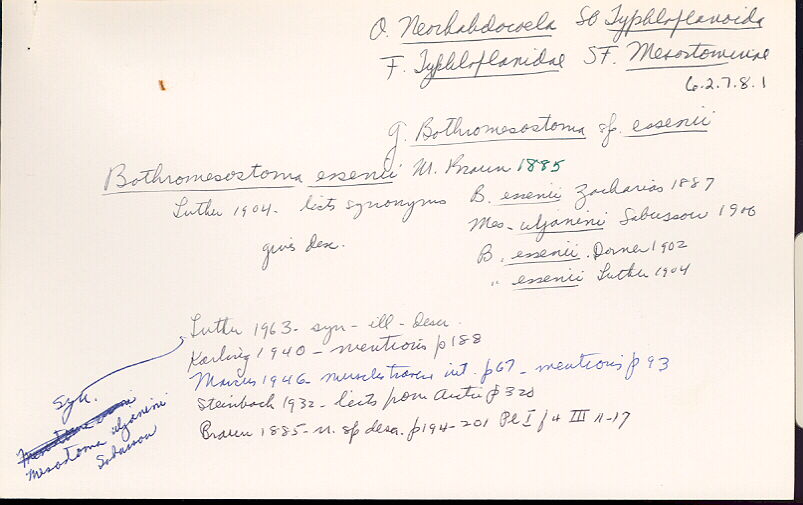 O. Neorhabdocoela SO Typhloplanoida
F. Typhloplanidae SF. Mesostominae
6.2.7.8.1
g. Bothromesostoma sp. essenii
Bothromesostoma essenii M. Braun 1885
Luther 1904. lists synonyms B. essenii Zacharias 1887
Mes. uljanini Sabussow 1900
gives desc. B. essenii. Dorner 1902
" essenii Luther 1904
Luther 1963 - syn - ill - descr.
Karling 1940 - mentions p 188
Marcus 1946 - muscles traverse int. p 67 - mentions p 93
Steinböck 1932 - lists from Arctic p 320
Braun 1885 - n. sp desc. p 194-201 Pl I f 4 III 11-17
syn.
Mesostoma uljanini
Sabussow